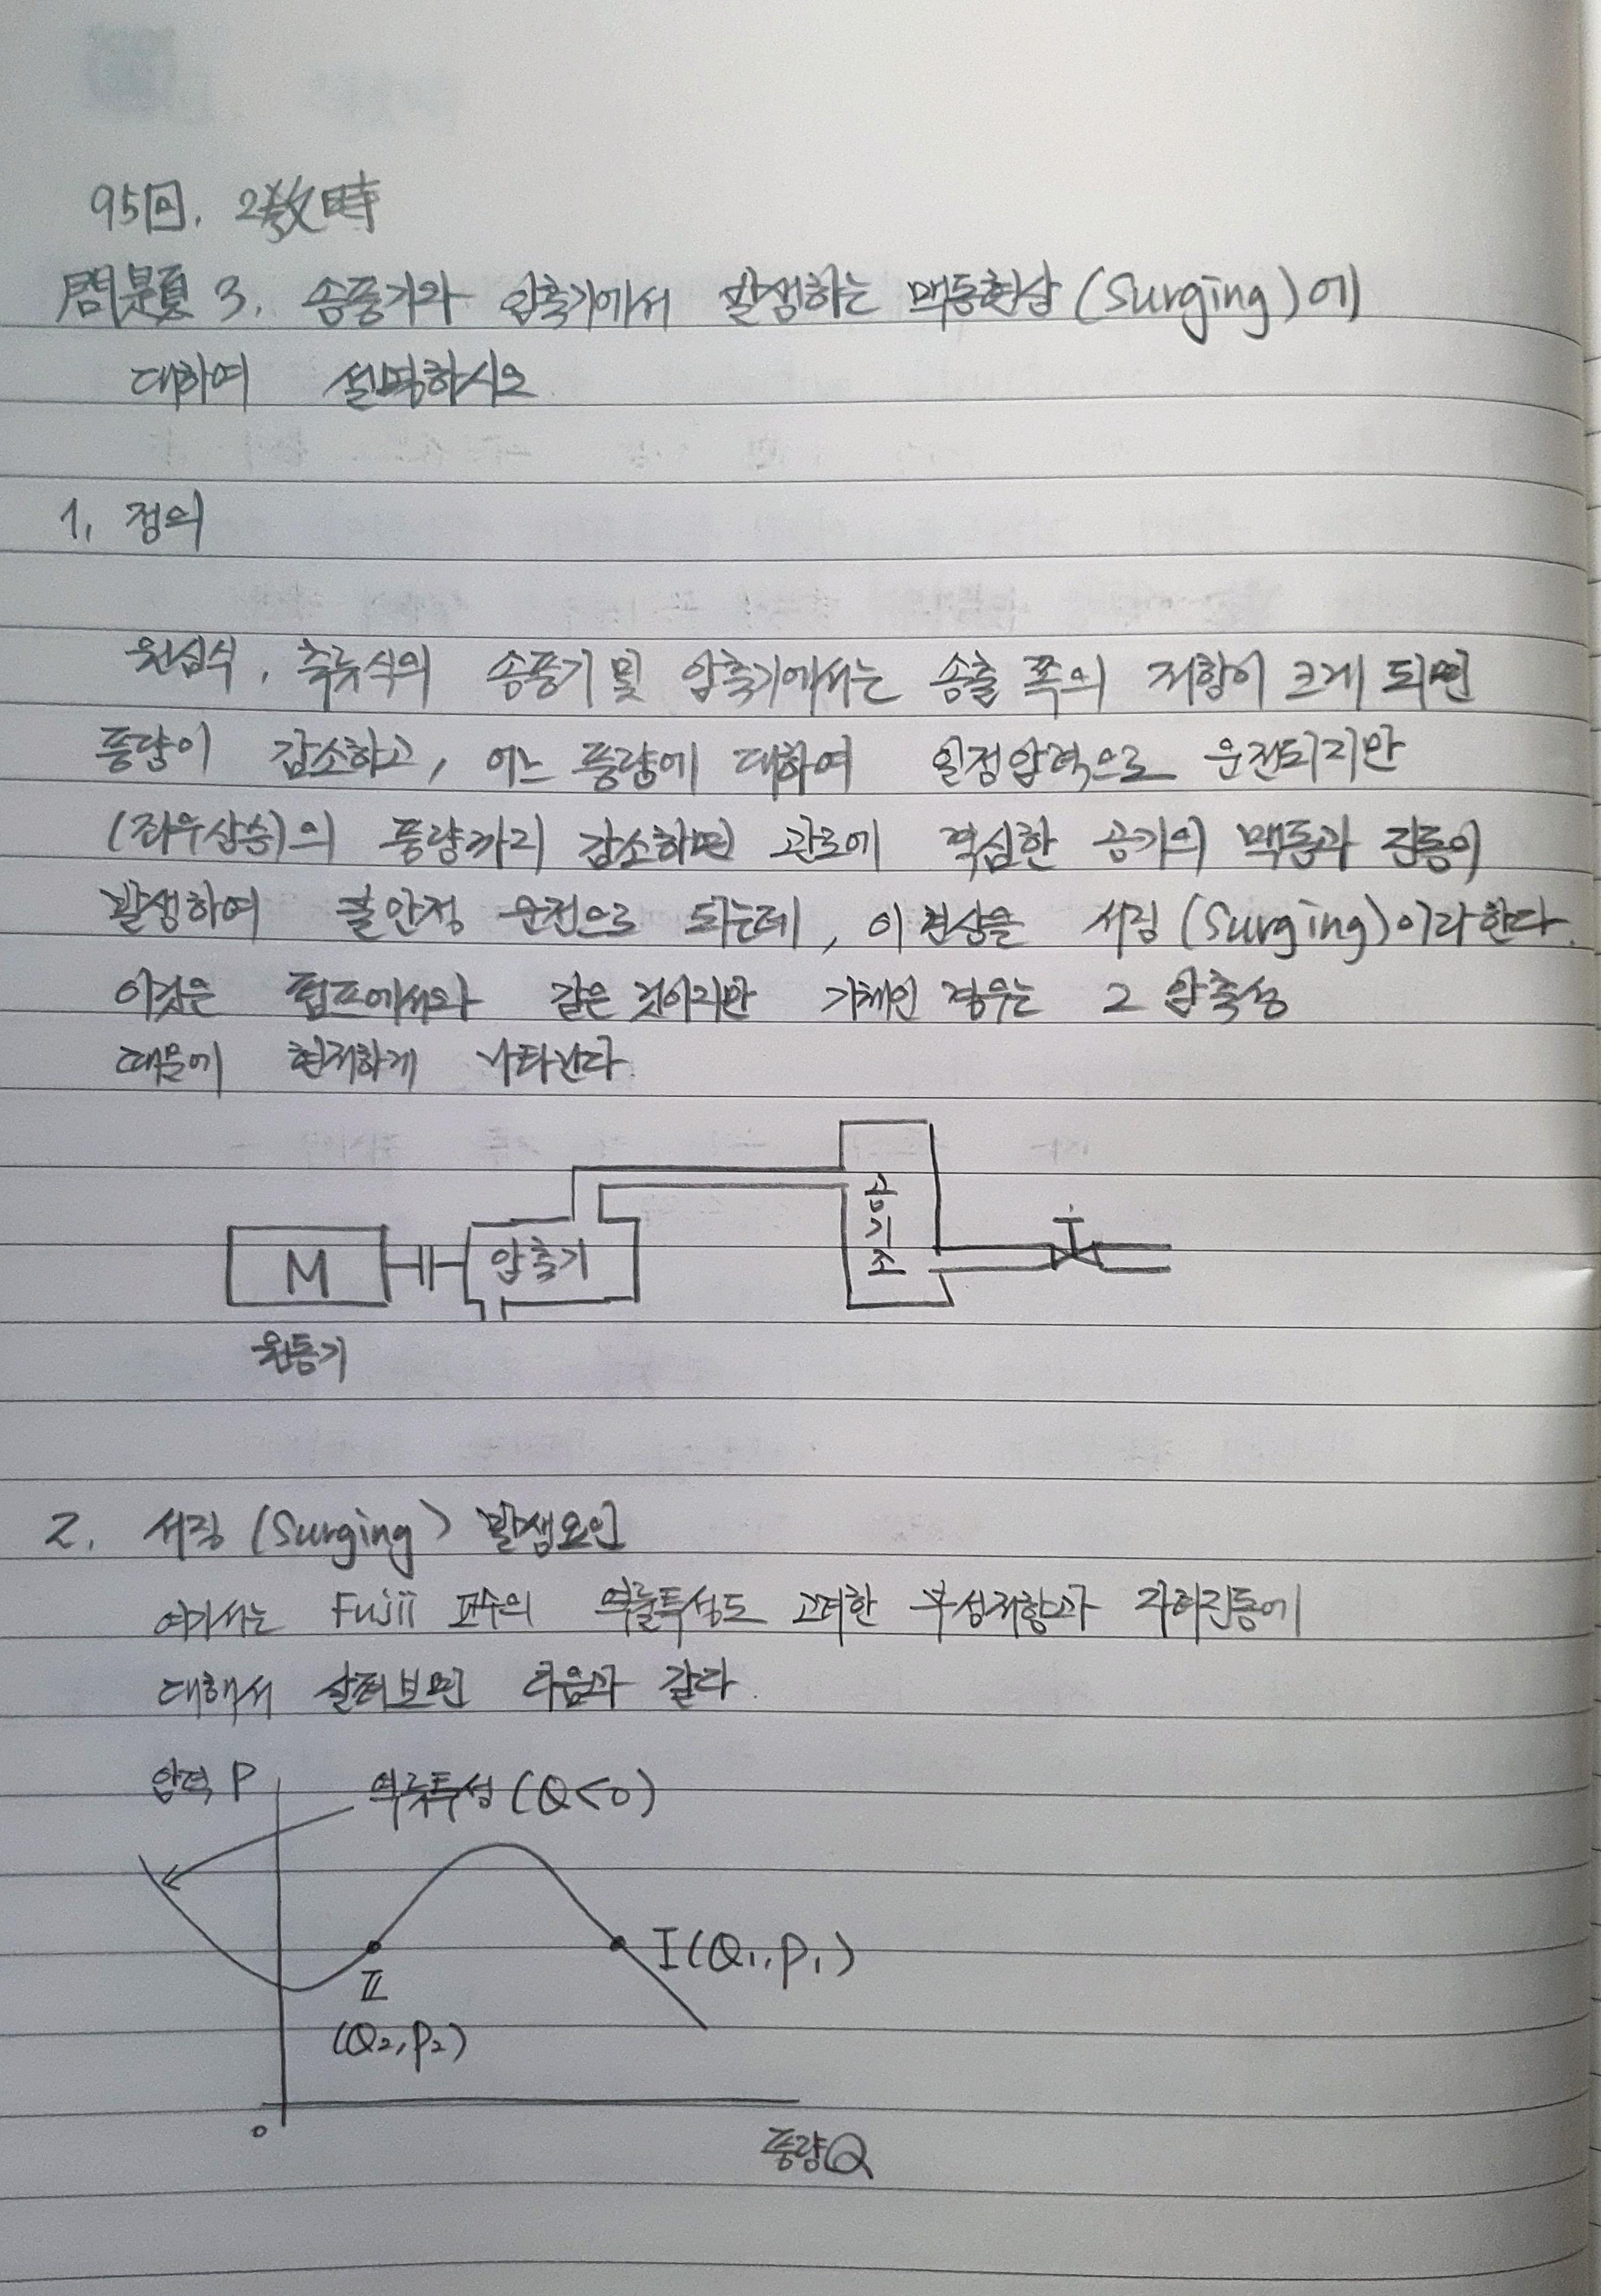 95回. 2敎時
問題 3. 송풍기와 압축기에서 발생하는 맥동현상 (Surging)에
대하여 설명하시오
1. 정의
원심식, 축류식의 송풍기 및 압축기에서는 송출 쪽의 저항이 크게 되면
풍량이 감소하고, 어느 풍량에 대하여 일정압력으로 운전되지만
(좌우상승)의 풍량까지 감소하면 관로에 격심한 공기의 맥동과 진동이
발생하여 불안정 운전으로 되는데, 이 현상을 서징 (Surging)이라 한다.
이것은 펌프에서와 같은 것이지만 기체인 경우는 그 압축성
때문에 현저하게 나타난다.
공기조
M 압축기
원동기
2. 서징 (Surging) 발생요인
여기서는 Fujii 교수의 역류특성도 고려한 부성저항과 자려진동에
대해서 살펴보면 다음과 같다.
압력 P 역류특성 (Q<0)
I (Q₁, P₁)
II
(Q₂, P₂)
0
풍량Q